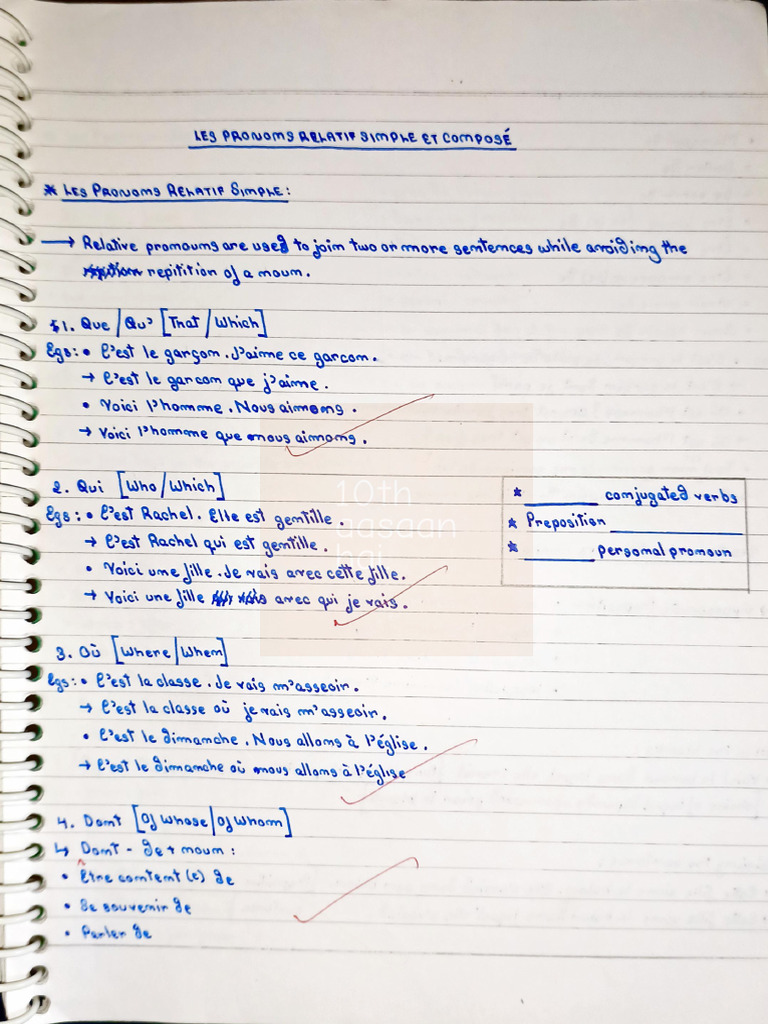 LES PRONOMS RELATIF SIMPLE ET COMPOSÉ
* LES PRONOMS RELATIF SIMPLE:
→ Relative pronouns are used to join two or more sentences while avoiding the
repitition of a noun.
1. Que / Qu' [That / Which]
Egs: • C'est le garçon. J'aime ce garcon.
→ C'est le garcon que j'aime.
• Voici l'homme. Nous aimons.
→ Voici l'homme que nous aimons.
2. Qui [Who / Which]
Egs: • C'est Rachel. Elle est gentille.
→ C'est Rachel qui est gentille.
• Voici une fille. Je vais avec cette fille.
→ Voici une fille avec qui je vais.
* ______ conjugated verbs
* Preposition ______
* ______ personal pronoun
3. Où [Where / When]
Egs: • C'est la classe. Je vais m'asseoir.
→ C'est la classe où je vais m'asseoir.
• C'est le dimanche. Nous allons à l'église.
→ C'est le dimanche où nous allons à l'église
4. Dont [Of whose / Of whom]
↳ Dont - de + noun:
• Être content (e) de
• Se souvenir de
• Parler de
10th
aasaan
hai